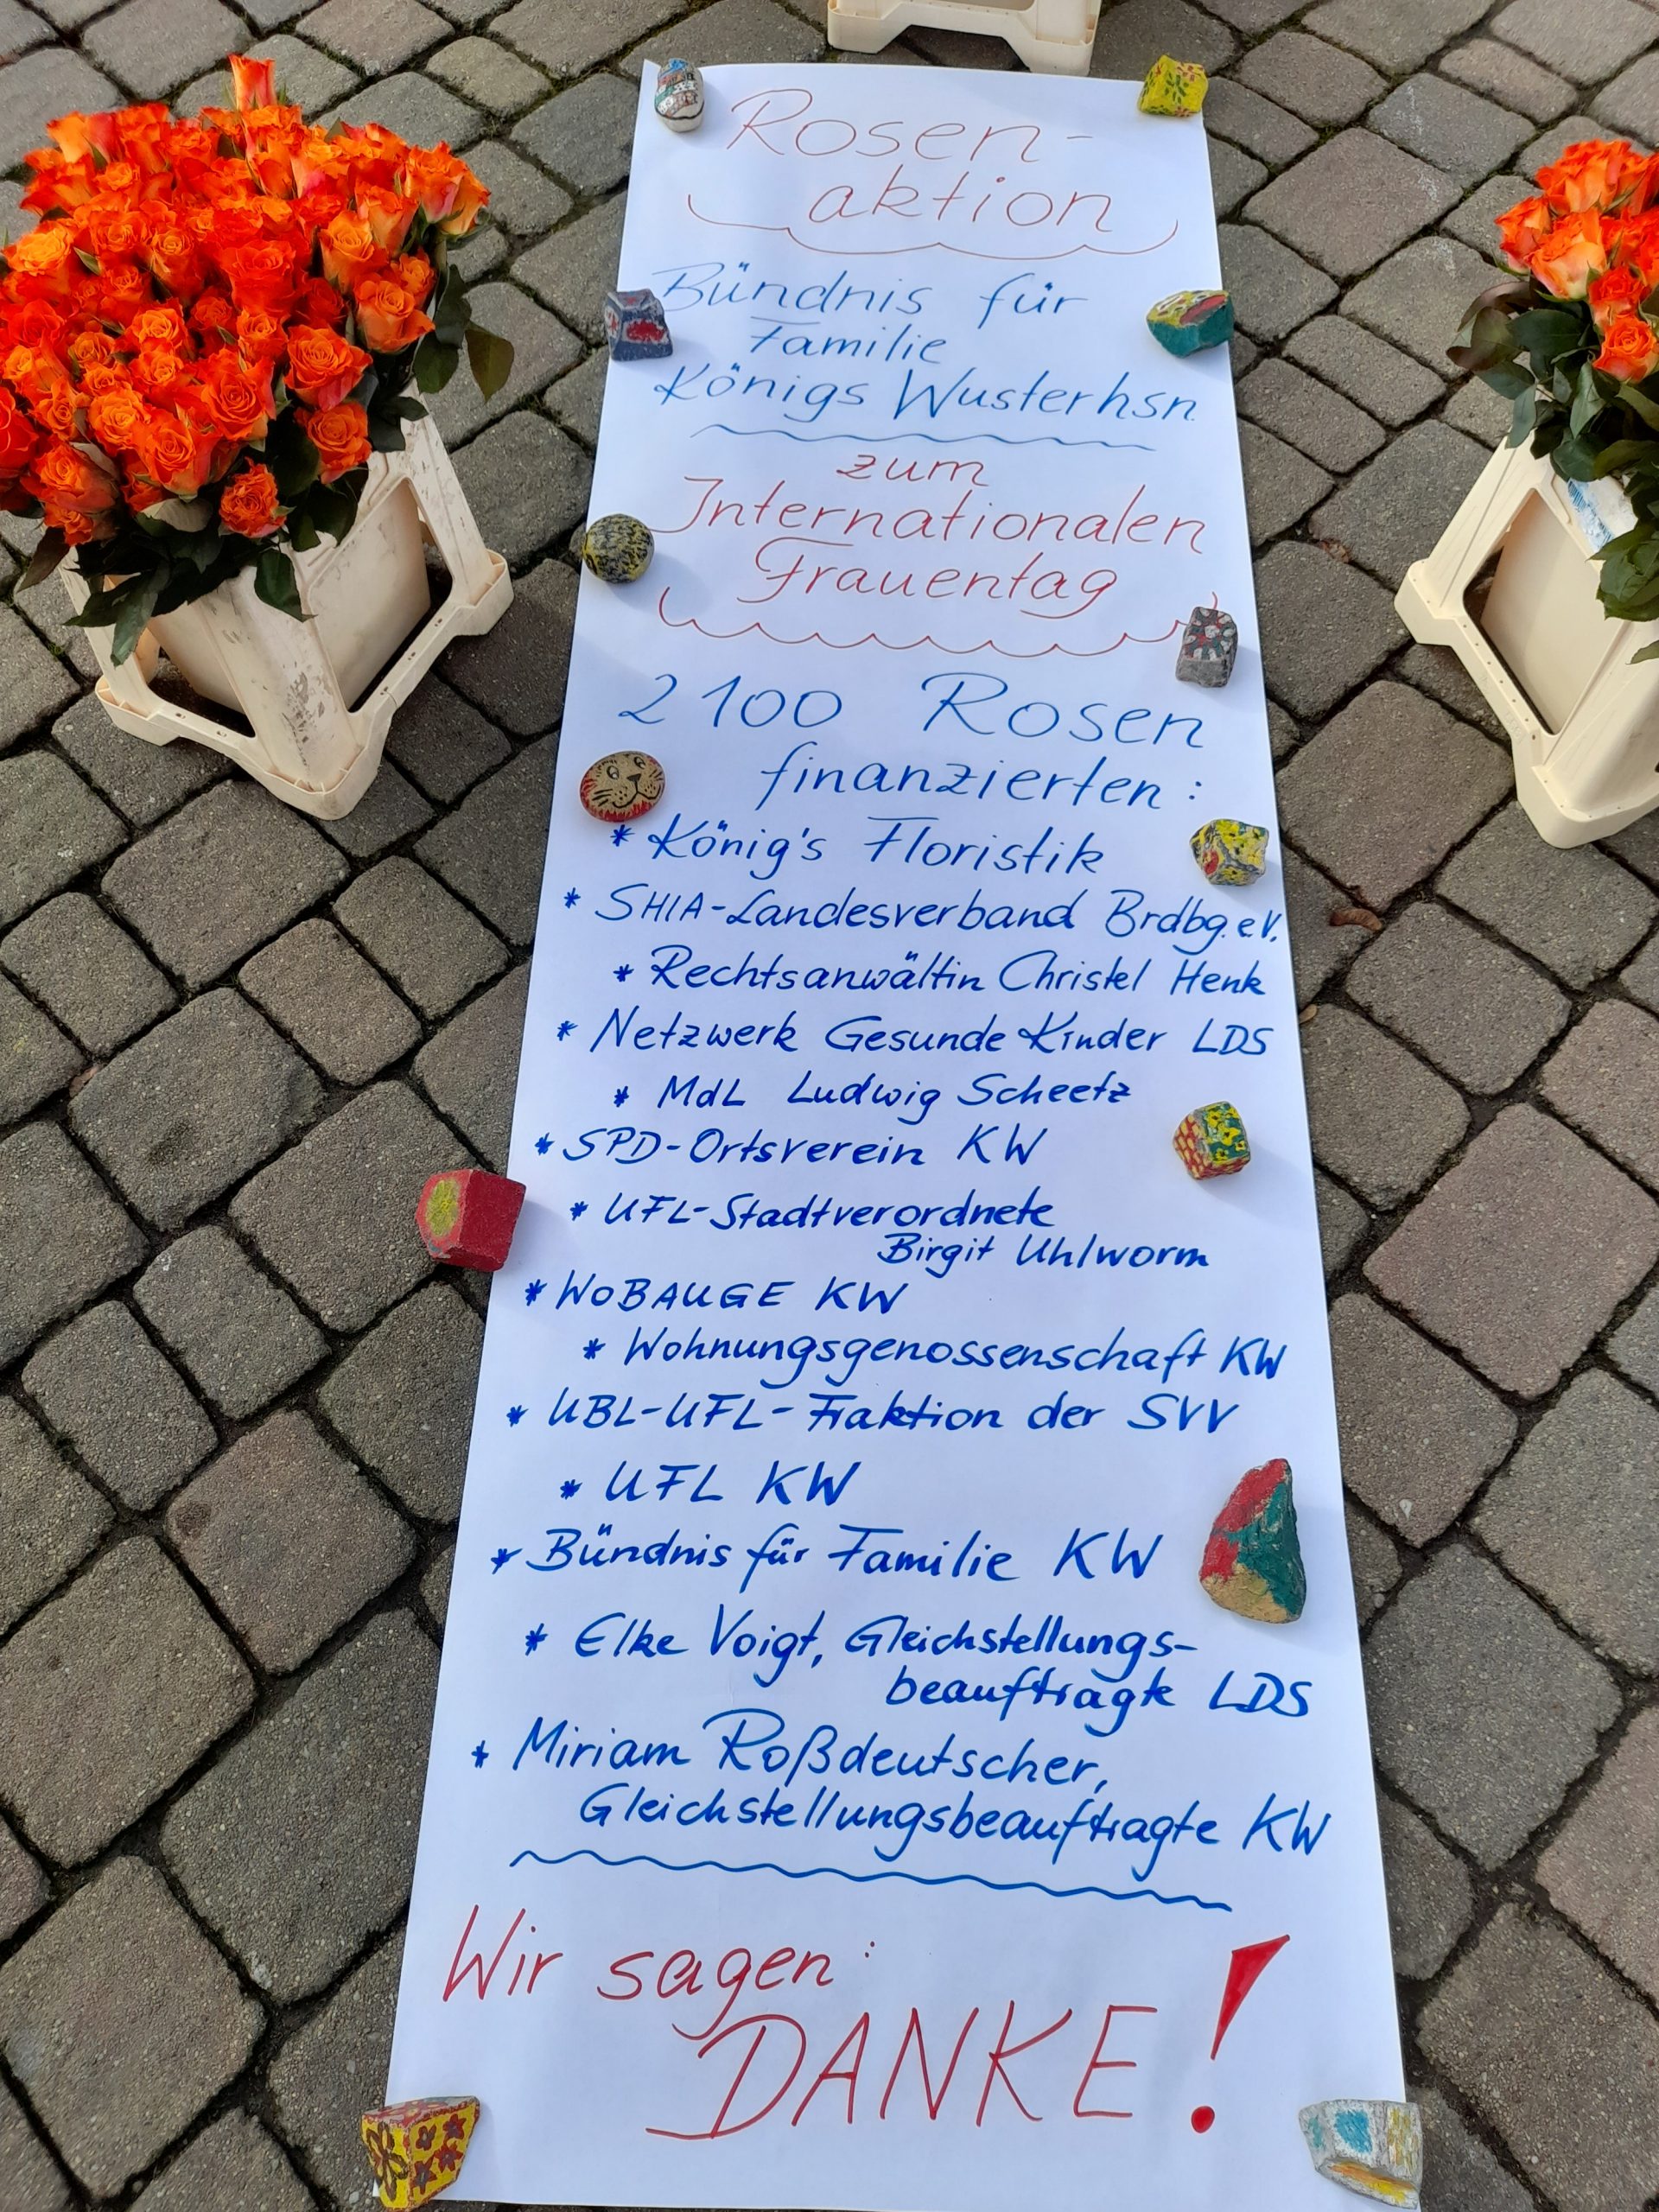 Rosen-
aktion
Bündnis für
Familie
Königs Wusterhsn.
zum
Internationalen
Frauentag
2100 Rosen
finanzierten:
* König's Floristik
* SHIA-Landesverband Brdbg. e.V.
* Rechtsanwältin Christel Henk
* Netzwerk Gesunde Kinder LDS
* MdL Ludwig Scheetz
* SPD-Ortsverein KW
* UFL-Stadtverordnete
Birgit Uhlworm
* WOBAUGE KW
* Wohnungsgenossenschaft KW
* UBL-UFL-Fraktion der SVV
* UFL KW
* Bündnis für Familie KW
* Elke Voigt, Gleichstellungs-
beauftragte LDS
* Miriam Roßdeutscher,
Gleichstellungsbeauftragte KW
Wir sagen:
DANKE!